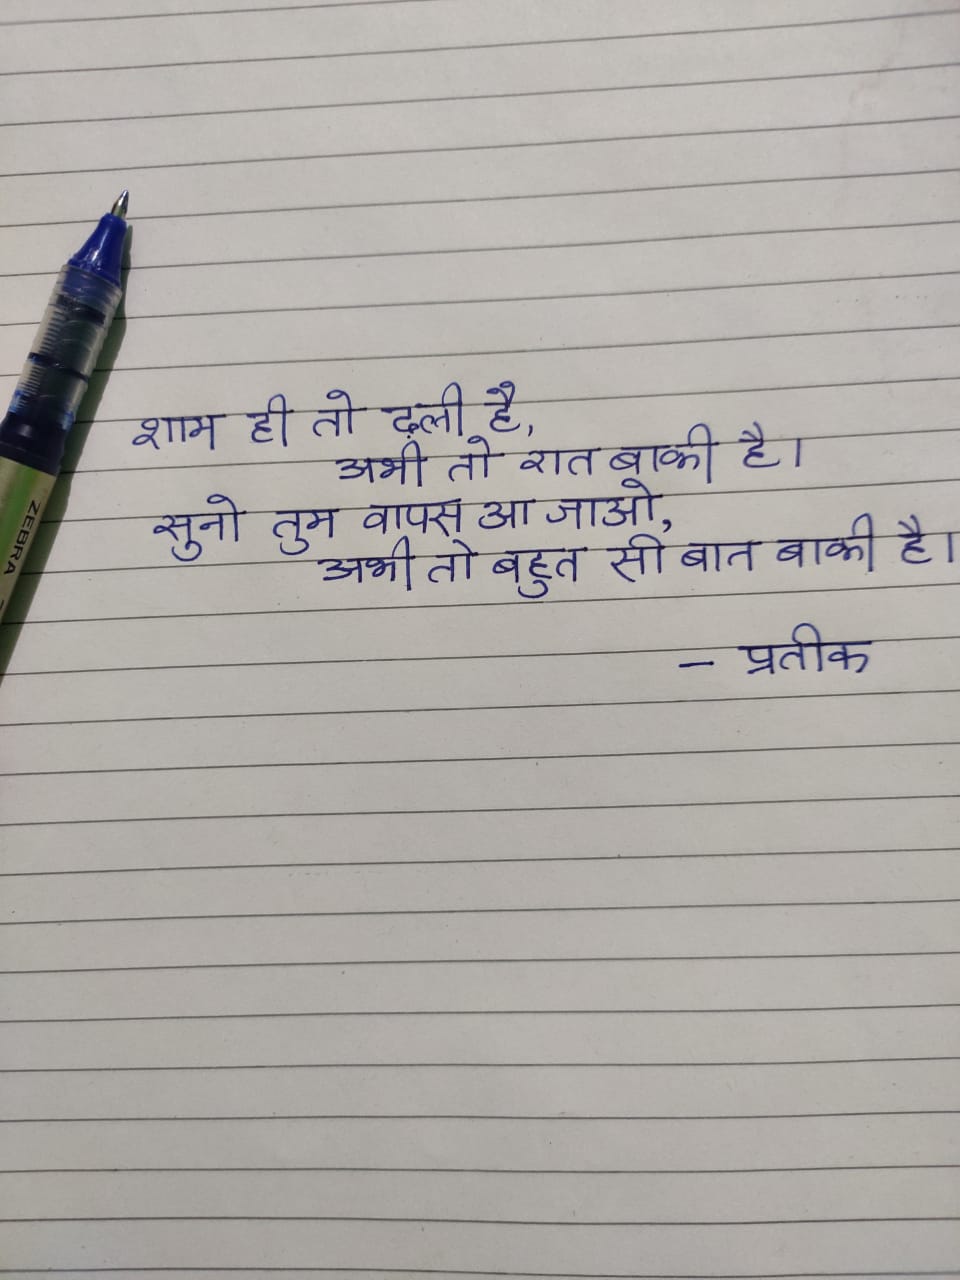 शाम ही तो ढ़ली है,
अभी तो रात बाकी है।
सुनो तुम वापस आ जाओ,
अभी तो बहुत सी बात बाकी है।
– प्रतीक
ZEBRA